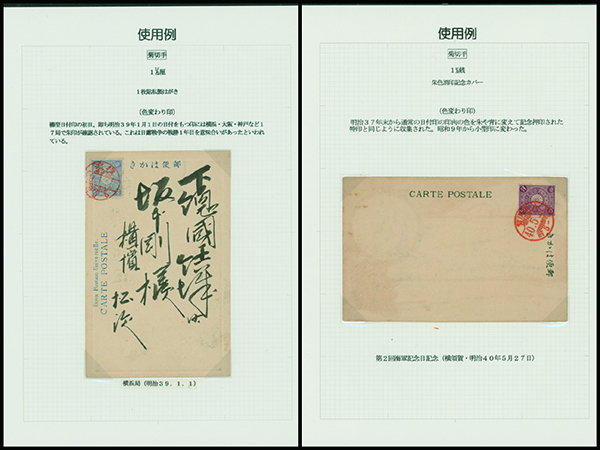 使用例
菊切手
1½厘
1枚貼私製はがき
(色変わり印)
櫛型日付印の初日、即ち明治39年1月1日の日付をもつ印には横浜・大阪・神戸など1
7局で朱印が確認されている。これは日露戦争の戦勝1年目を意味合いがあったといわれ
ている。
郵便はかき
Union Postale Universelle.
CARTE POSTALE
坂本剛様
横浜局(明治39.1.1)
使用例
菊切手
1½銭
朱色消印記念カバー
(色変わり印)
明治37年末から通常の日付印の印肉の色を朱や青に変えて記念押印された
特印と同じように収集された。昭和9年から小型印に変わった。
CARTE POSTALE
郵便はかき
40.5
第2回海軍記念日記念(横須賀・明治40年5月27日)